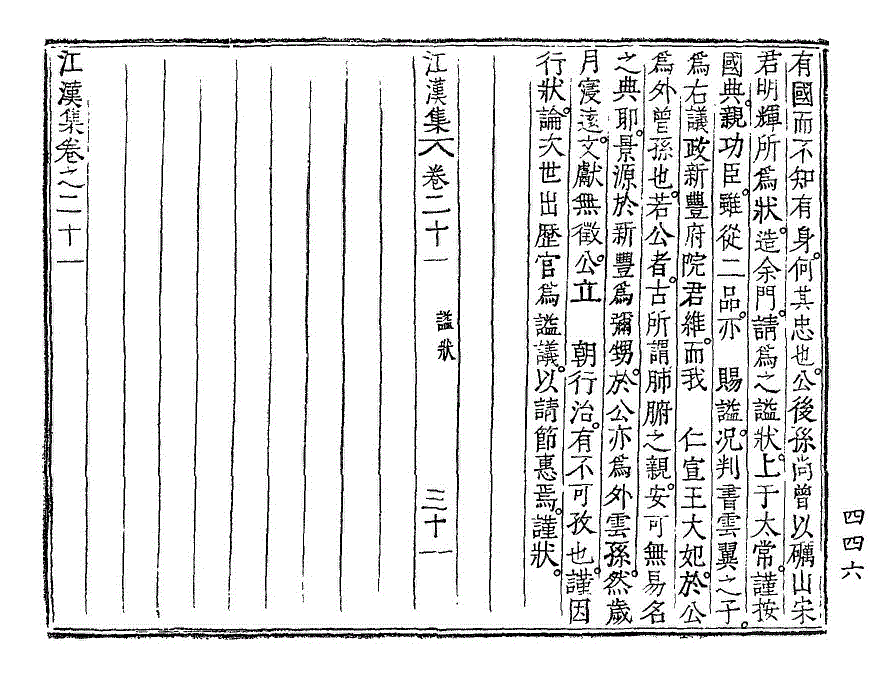 有國而不知有身。何其忠也。公後孫尚曾以礪山宋
君明輝所爲狀。造余門。請爲之謚狀。上于太常。謹按
國典。親功臣。雖從二品。亦 賜謚。况判書雲翼之子。
爲右議政新豐府院君維。而我 仁宣王大妃。於公
爲外曾孫也。若公者。古所謂肺腑之親。安可無易名
之典耶。景源於新豐爲彌甥。於公亦爲外雲孫。然歲
月寖遠。文獻無徵。公立 朝行治。有不可攷也。謹因
行狀。論次世出歷官爲謚議。以請節惠焉。謹狀。
江漢集 卷二十一 謚狀 三十一
江漢集卷之二十一
四四六